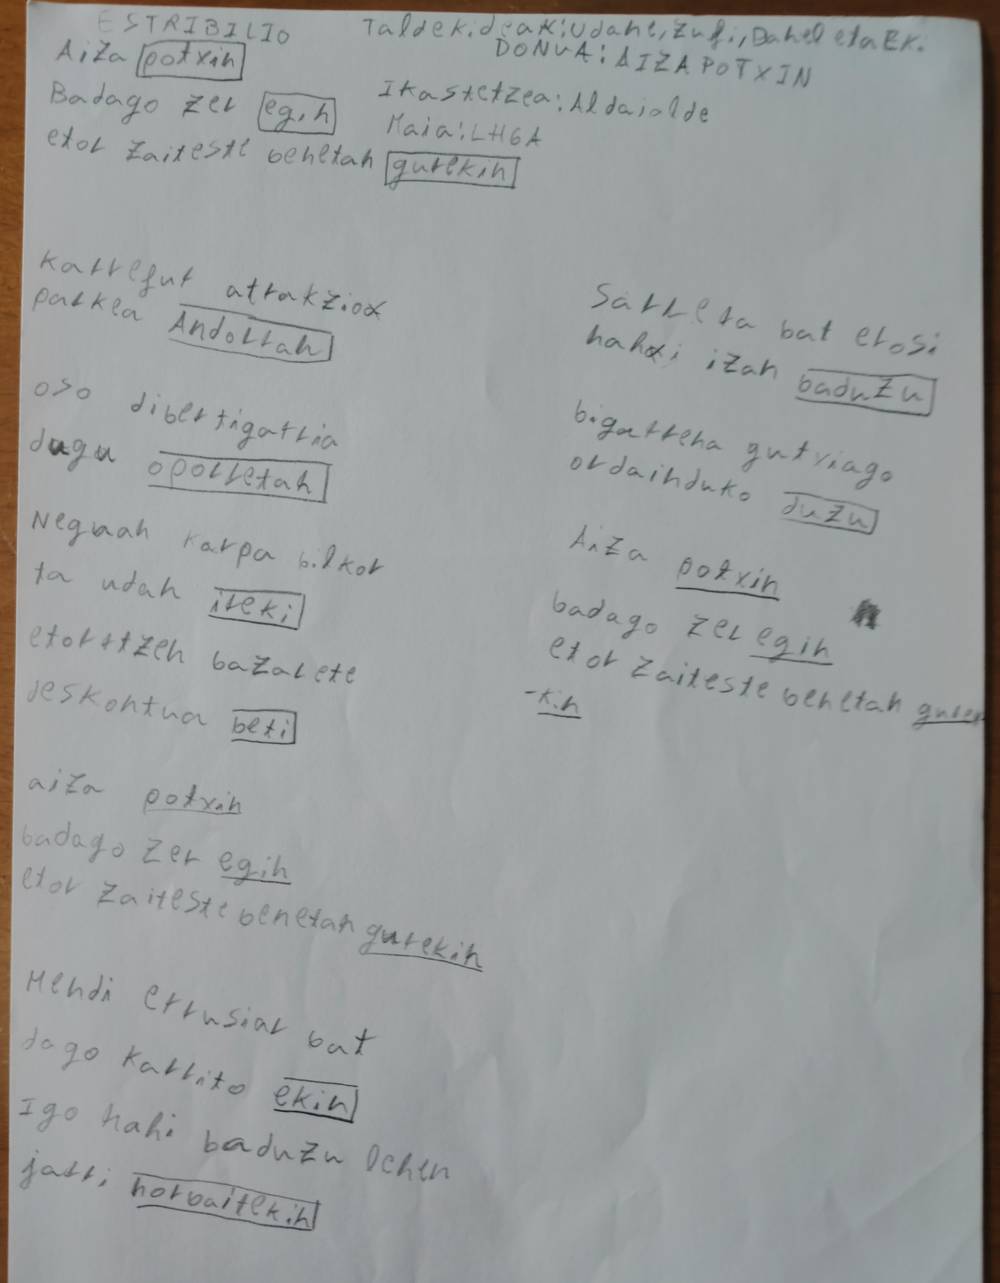 ESTRIBILIO
Aiza potxin
Badago zer egin
etor zaiteste benetan gurekin
Taldekideak: Udane, Zufi, Danel eta EK.
DONUA: AIZA POTXIN
Ikastetzea: Aldaialde
Maia: LH6A
Karrefur atrakzioa
parkea Andorran
oso dibertigarria
dugu oporretan
Neguan karpa bilkor
ta udan ireki
etorrtzen bazarete
deskontua beti
aiza potxin
badago zer egin
etor zaiteste benetan gurekin
Mendi errusiar bat
dago karrito ekin
Igo nahi baduzu lehen
jarri norbaitekin
Sarrera bat erosi
nahi izan baduzu
bigarrena gutxiago
ordainduko duzu
Aiza potxin
badago zer egin
etor zaiteste benetan gure
-kin